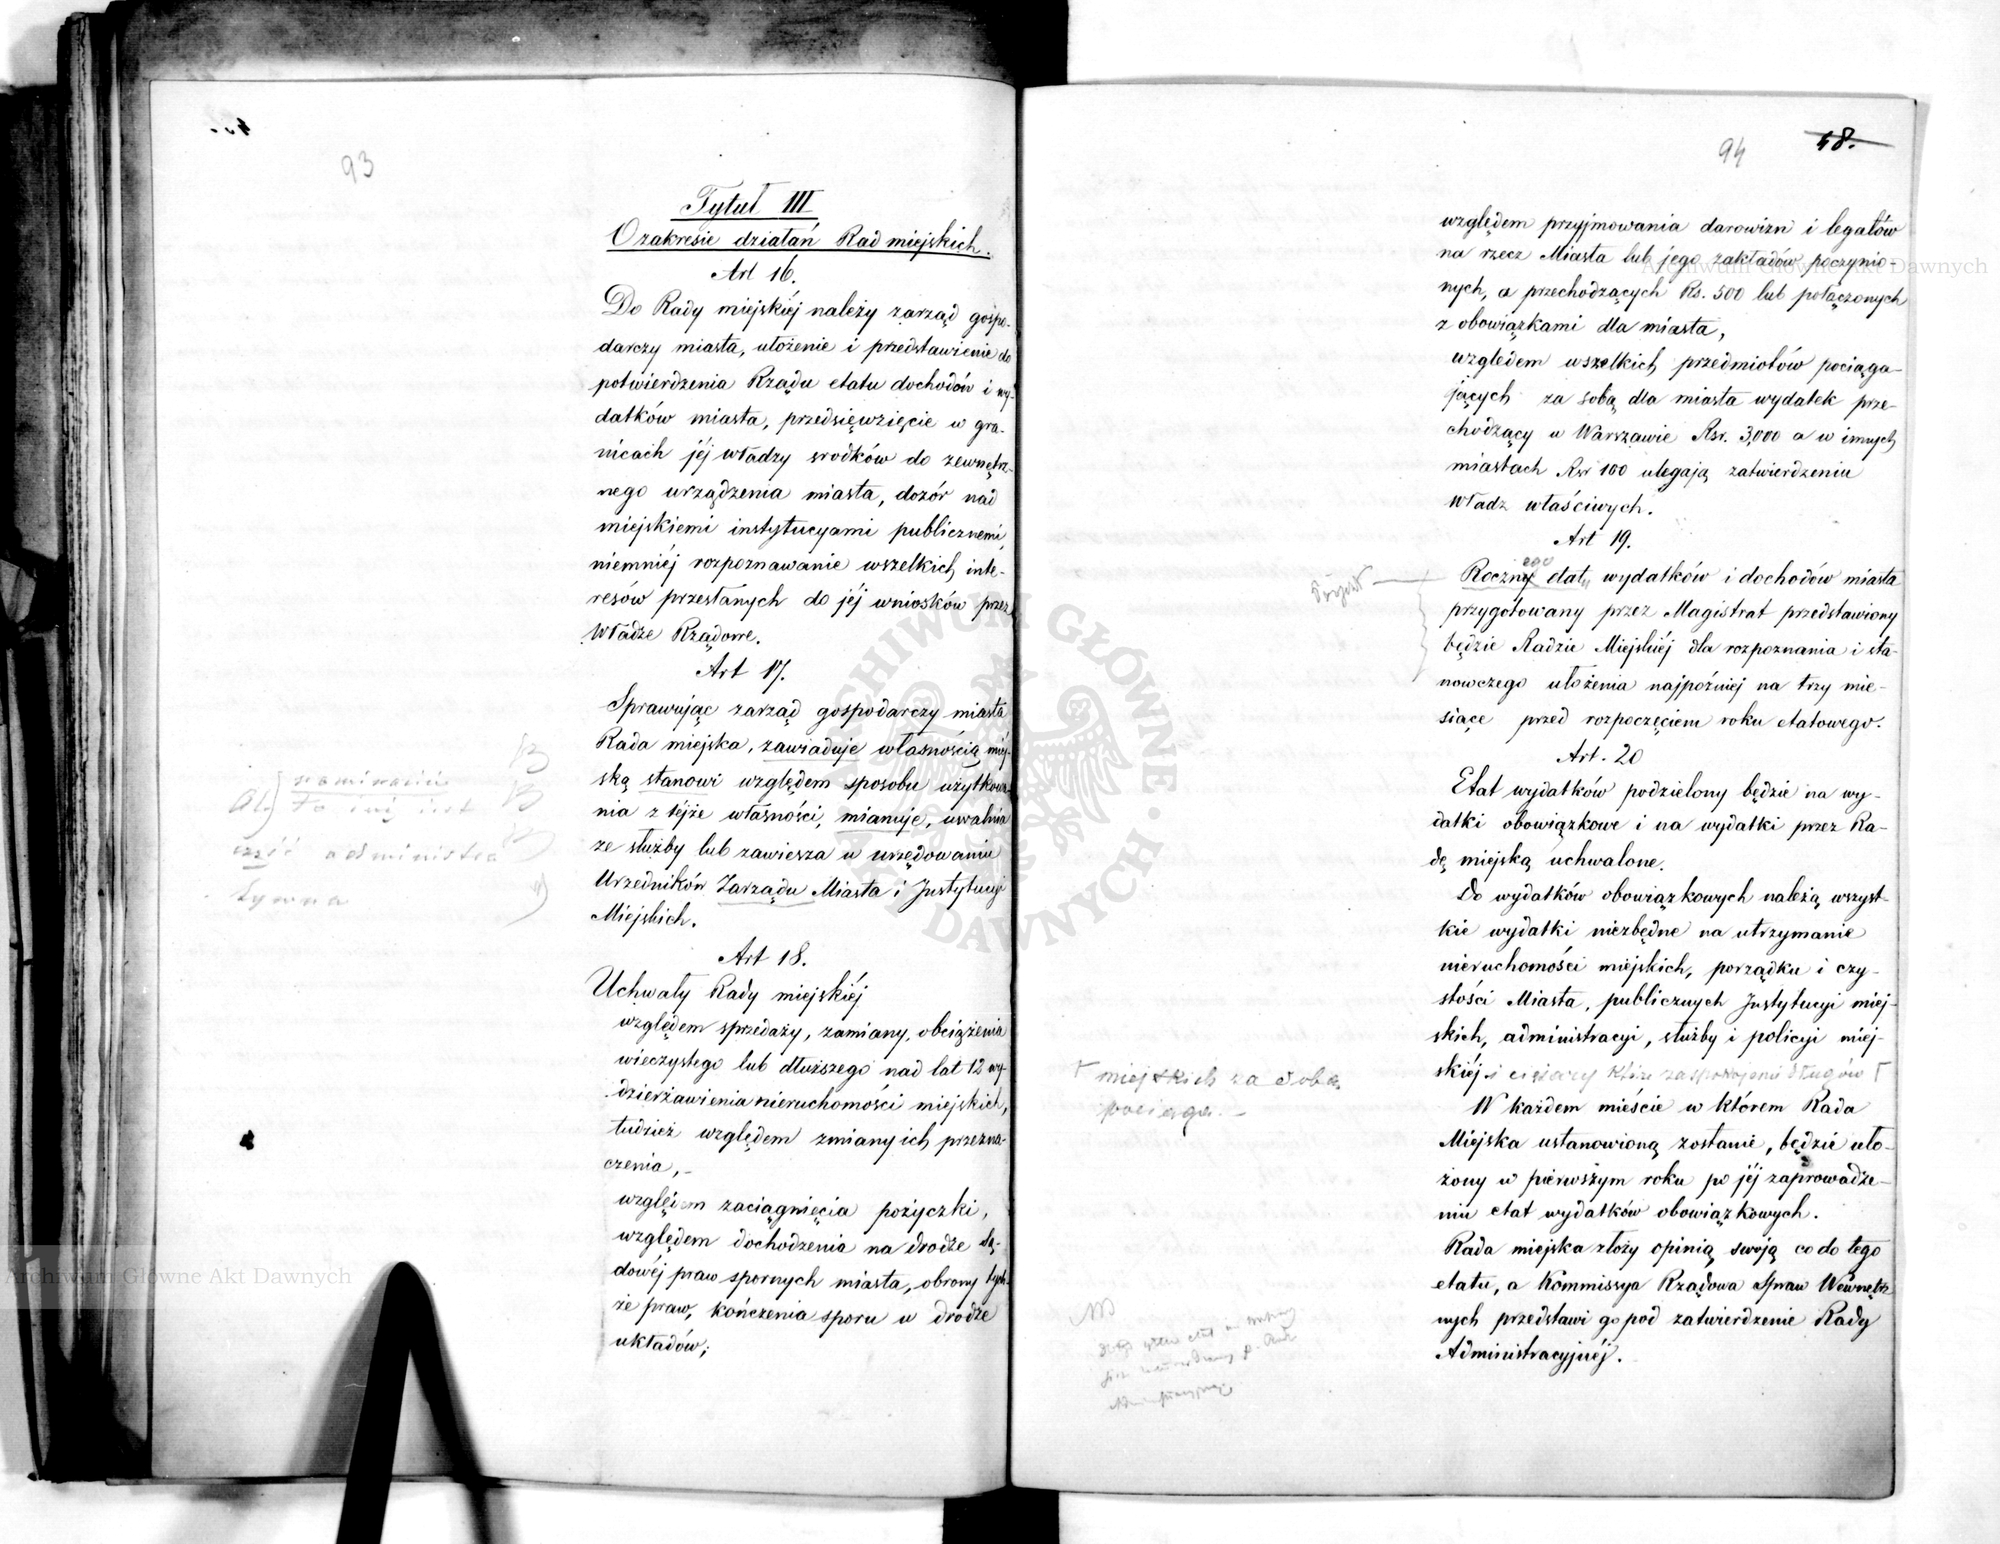 93
Tytuł III
O zakresie działań Rad miejskich.
Art 16.
Do Rady miejskiéj należy zarząd gospo-
darczy miasta, ułożenie i przedstawienie do
potwierdzenia Rządu etatu dochodów i wy-
datków miasta, przedsięwzięcie w gra-
nicach jéj władzy srodków do zewnętrz-
nego urządzenia miasta, dozór nad
miejskiemi instytucyami publicznemi,
niemniéj rozpoznawanie wszelkich inte-
resów przesłanych do jéj wniosków przez
Władze Rządowe.
Art 17.
Sprawując zarząd gospodarczy miasta
Rada miejska, zawiaduje własnością miej-
ską stanowi względem sposobu użytkowa-
nia z téjże własności, mianuje, uwalnia
ze służby lub zawiesza w urzędowaniu
Urzedników Zarządu Miasta i Instytucyi
Miejskich.
nominacie
to inż jest
część administra
tywna
Art 18.
Uchwały Rady miejskiéj
względem sprzedaży, zamiany, obciążenia
wieczystego lub dłuższego nad lat 12 wy-
dzierżawienia nieruchomości miejskich,
tudzież względem zmiany ich przezna-
czenia,
względem zaciągnięcia pożyczki,
względem dochodzenia na drodze są-
dowéj praw spornych miasta, obrony tych-
że praw, kończenia sporu w drodze
układów;
94
48.
względem przyjmowania darowizn i legatów
na rzecz Miasta lub jego zakładów poczynio-
nych, a przechodzących Rs. 500 lub połączonych
z obowiązkami dla miasta,
względem wszelkich przedmiotów pociąga-
jących za sobą dla miasta wydatek prze-
chodzący w Warszawie Rsr. 3,000 a w innych
miastach Rsr 100 ulegają zatwierdzeniu
Władz właściwych.
Art 19.
ego
Roczny etat wydatków i dochodów miasta
przygotowany przez Magistrat przedstawiony
będzie Radzie Miejskiéj dla rozpoznania i sta-
nowczego ułożenia najpóźniej na trzy mie-
siące przed rozpoczęciem roku etatowego.
Art. 20
Etat wydatków podzielony będzie na wy-
datki obowiązkowe i na wydatki przez Ra-
dę miejską uchwalone.
Do wydatków obowiązkowych należą wszyst-
kie wydatki niezbędne na utrzymanie
nieruchomości miejskich, porządku i czy-
stości Miasta, publicznych Instytucyi miej-
skich, administracyi, służby i policyi miej-
skiéj i ciężary które zaspokojenie długów
miejskich za sobą
pociąga.-
W każdem mieście w którem Rada
Miejska ustanowioną zostanie, będzie uło-
żony w pierwszym roku po jéj zaprowadze-
niu etat wydatków obowiązkowych.
Rada miejska złoży opinią swoją co do tego
etatu, a Kommissya Rządowa Spraw Wewnętrz-
nych przedstawi go pod zatwierdzenie Rady
Administracyjnéj.
Archiwum Główne Akt Dawnych
Archiwum Główne Akt Dawnych
ARCHIWUM GŁÓWNE AKT DAWNYCH